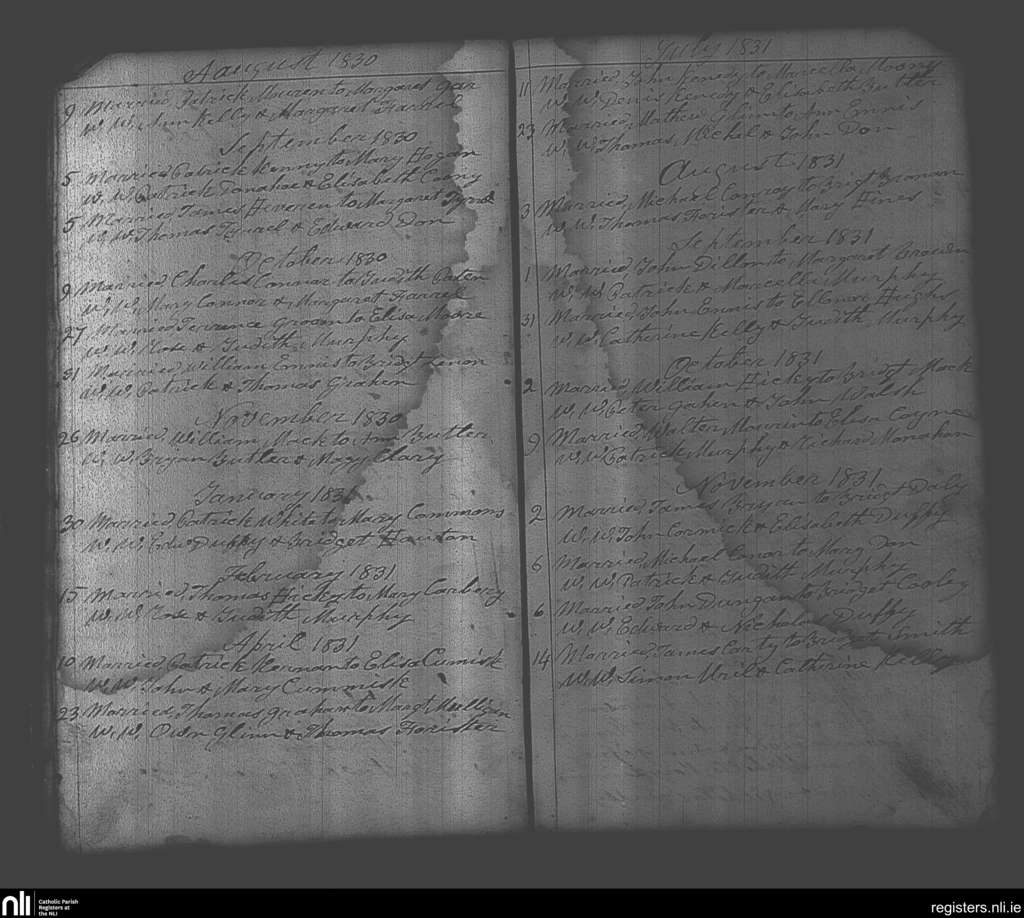 August 1830
9 Married, Patrick Mouren to Margaret Gar
W. W. Ann Kelly & Margaret Farrell
September 1830
5 Married Patrick Kenny to Mary Hogan
W. W. Patrick Donahoe & Elisabeth Cuny
5 Married, James Heveren to Margaret Tyrrel
W. W. Thomas Tyrrel & Edward Don
October 1830
9 Married Charles Connor to Judith
W. W. Mary Connor & Margaret Farrell
27 Married Terrence Groom to Elisa Moore
W. W. Rose & Judith Murphy
31 Married William Ennis to Bridgt Lenon
W. W. Patrick & Thomas Graham
November 1830
26 Married, William Mack to Ann Butler
W. W. Bryan Butler & Mary Clary
January 1831
30 Married Patrick White to Mary Commons
W. W. Edwd Duffy & Bridget
February 1831
15 Married, Thomas Hicky to Mary Carbery
W. W. Rose & Judith Murphy
April 1831
10 Married Patrick Kornan to Elisa Cumisk
W. W. John & Mary Cummisk
23 Married, Thomas Graham to Margt Mulligan
W. W. Owen Glinn & Thomas Forister
July 1831
11 Married John Kenedy to Marcella Moony
W. W. Denis Kenedy & Elisabeth Butler
23 Married, Mathew Glinn to Ann Ennis
W. W. Thomas, Michel & John Don
August 1831
3 Married, Michael Conroy to Brigt Branan
W. W. Thomas Forister & Mary Hines
September 1831
1 Married John Dillon to Margaret Browen
W. W. Patrick & Marcella Murphy
31 Married, John Ennis to Ellenor Hughs
W. W. Catherine Kelly & Judith Murphy
October 1831
2 Married, William Hicky to Bridgt Mack
W. W. Peter Gahen & John Walsh
9 Married, Walter Mourin to Elisa Coyne
W. W. Patrick Murphy & Richard Monahan
November 1831
2 Married James Bryan to Bridgt Daly
W. W. John Cormick & Elisabeth Duffy
6 Married Michael Conor to Mary Don
W. W. Patrick & Judith Murphy
6 Married John Dungan to Bridget Cooley
W. W. Edward & Nicholas Duffy
14 Married James Carty to Bridget Smith
W. W. Simon Uril & Catherine Kelly
nli Catholic Parish
Registers at
the NLI
registers.nli.ie